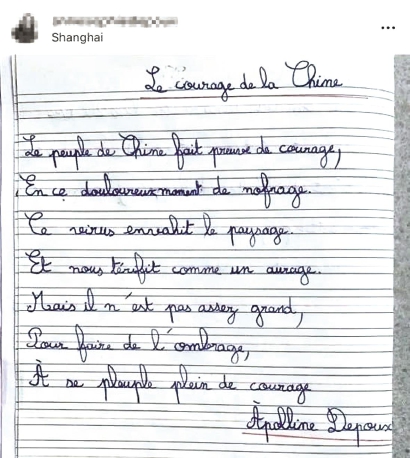 Shanghai
Le courage de la Chine
Le peuple de Chine fait preuve de courage,
En ce douloureux moment de nofrage.
Ce veirus envahit le paysage.
Et nous térifit comme un aurage.
Mais il n'est pas assez grand,
Pour faire de l'ombrage,
À se plouple plein de courage
Âpolline Depoux